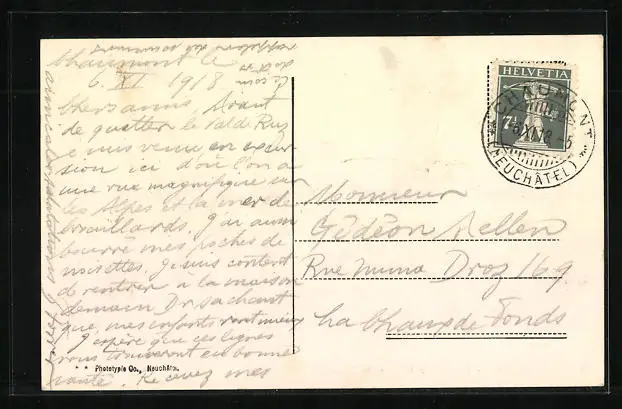 Chaumont le
6. XI 1918
Chers amis, Avant
de quitter le Val de Ruz
je suis venu en excur
sion ici d'où l'on a
une vue magnifique sur
les Alpes et la mer de
brouillards. J'ai aussi
bourré mes poches de
noisettes. Je suis content
de rentrer à la maison
demain sachant
que mes enfants vont mieux
J'espère que ces lignes
vous trouveront en bonne
santé. Recevez mes
Phototypie Co., Neuchâtel
HELVETIA
7½
CHAUMONT
(NEUCHÂTEL)
Monsieur
Gédéon Aellen
Rue Numa Droz 169
La Chaux de Fonds